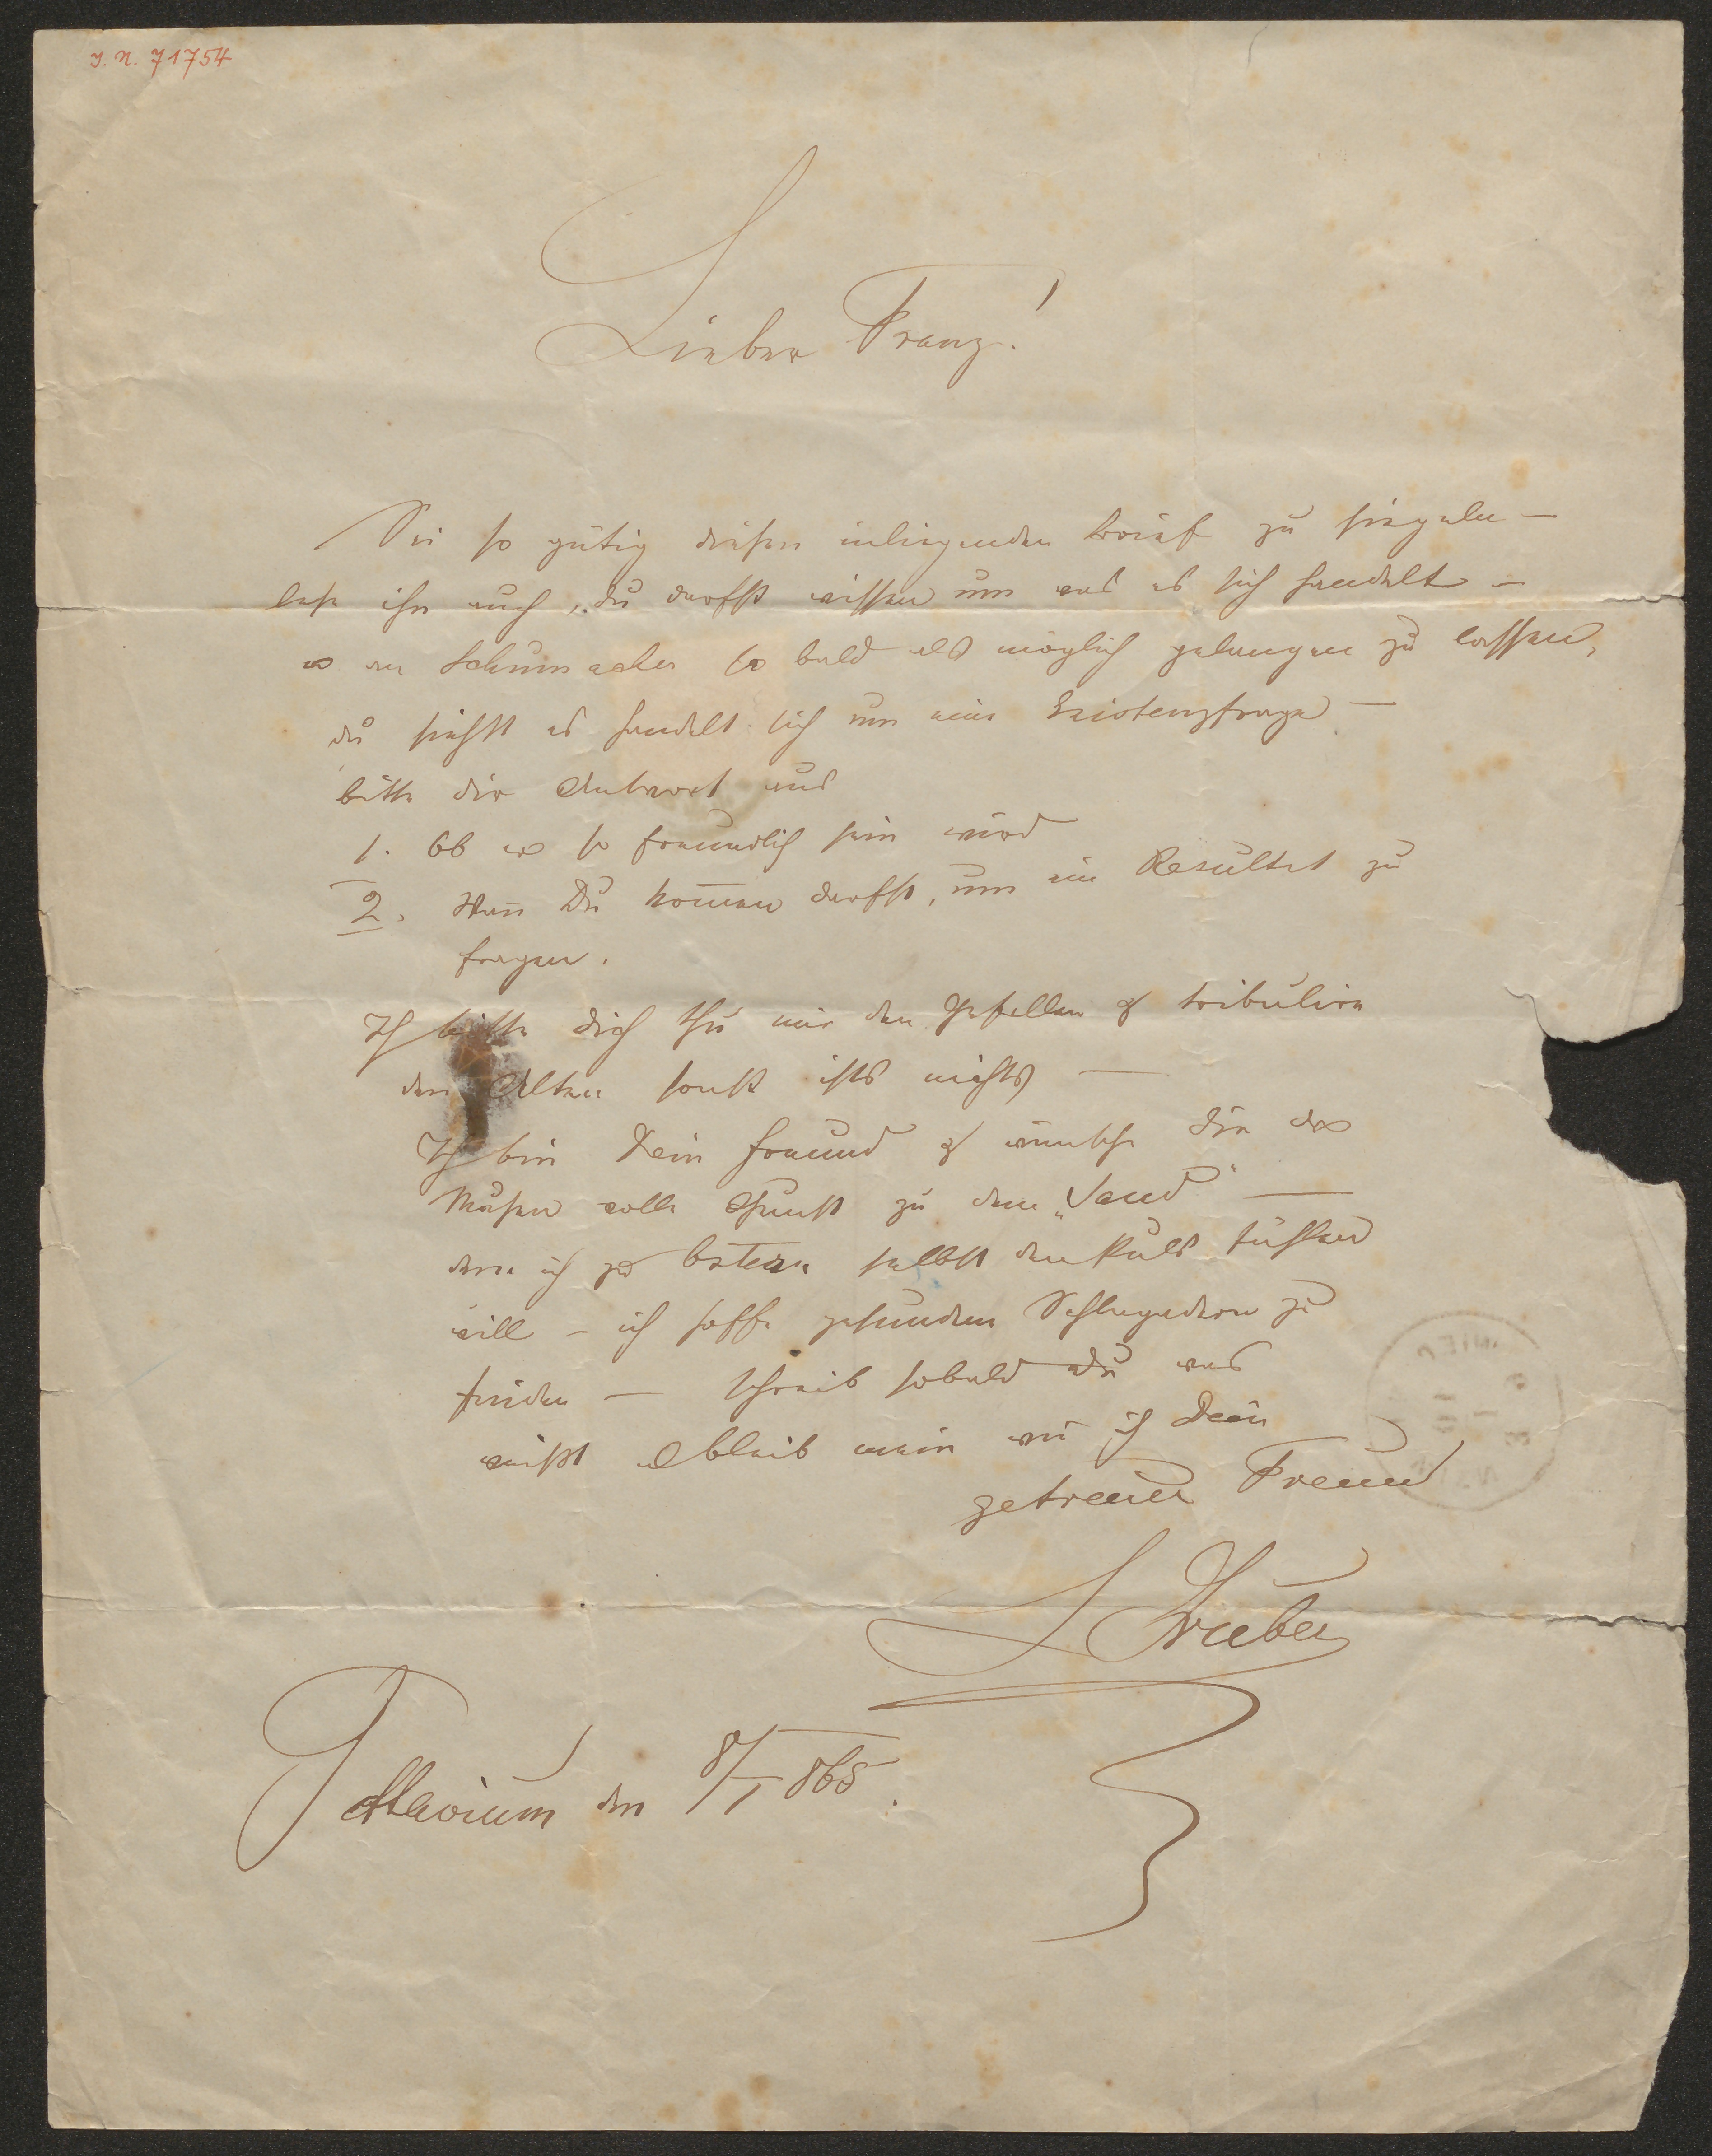 J. N. 71754
Lieber Franz!
Sei so gütig diesen inliegenden Brief zu siegeln –
lese ihn auch, du darfst wissen um was es sich handelt –
an Schumacher so bald als möglich gelangen zu lassen,
du siehst es handelt sich um eine Existenzfrage –
bitte dir Antwort aus
1. Ob er so freundlich sein wird
2. Wan̅ Du kom̅en darfst, um ein Resultat zu
fragen.
Ich bitte dich thu mir den Gefallen & tribulire
den Alten sonst ists nichts –
Ich bin Dein Freund & wünsche dir der
Musen volle Gunst zu dem „Sand" –
dem ich zu Ostern selbst den Puls fühlen
will – ich hoffe gesunden Schlagadern zu
finden – schreib sobald du was
weißt & bleib mein wie ich Dein
getreuer Freund
L Gruber
Pattavium den 8/I 865.